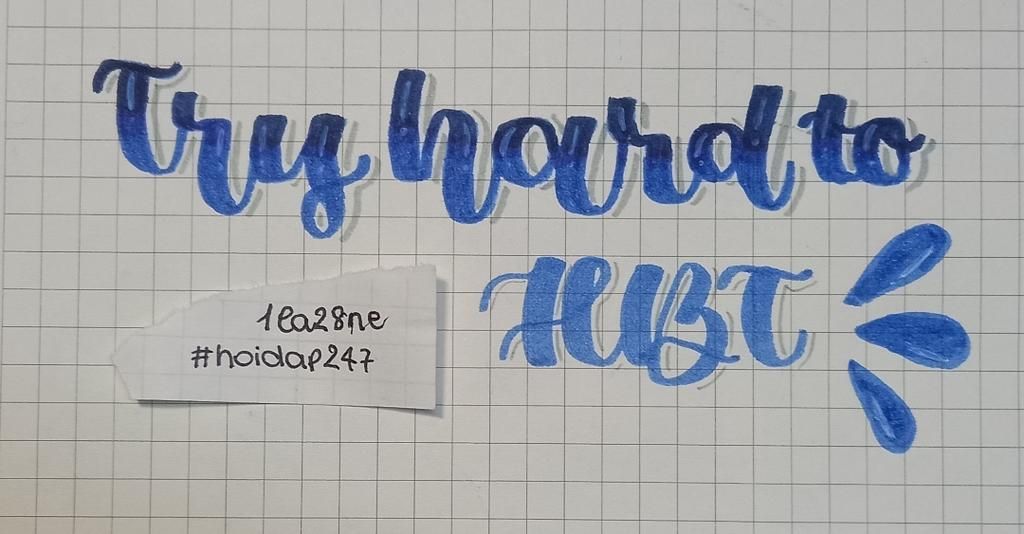 Try hard to
HBT
1ea28ne
#hoidap247